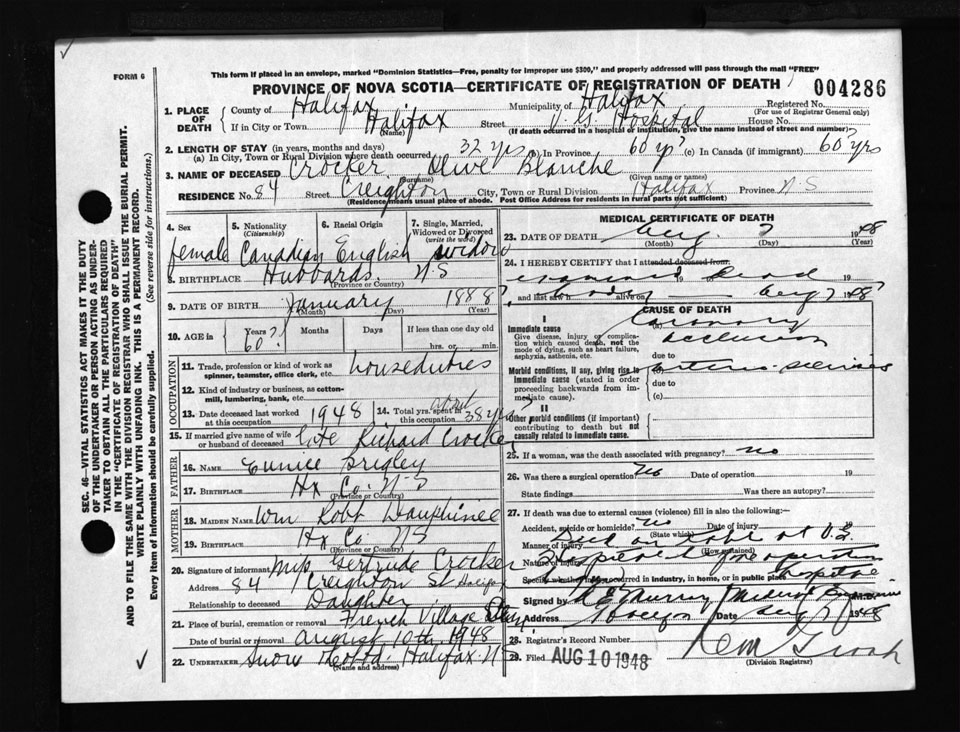 FORM 6
This form if placed in an envelope, marked "Dominion Statistics—Free, penalty for improper use $300," and properly addressed will pass through the mail "FREE"
PROVINCE OF NOVA SCOTIA—CERTIFICATE OF REGISTRATION OF DEATH
004286
1. PLACE OF DEATH
County of Halifax Municipality of Halifax Registered No.
(For use of Registrar General only)
If in City or Town Halifax Street V. G. Hospital House No.
(Name) (If death occurred in a hospital or institution, give the name instead of street and number)
2. LENGTH OF STAY (in years, months and days)
(a) In City, Town or Rural Division where death occurred 32 yrs (b) In Province 60 yrs? (c) In Canada (if immigrant) 60? yrs
3. NAME OF DECEASED Crocker Olive Blanche
(Surname) (Given name or names)
RESIDENCE No. 84 Street Creighton City, Town or Rural Division Halifax Province N.S
(Residence means usual place of abode. Post Office Address for residents in rural parts not sufficient)
4. Sex 5. Nationality (Citizenship) 6. Racial Origin 7. Single, Married, Widowed or Divorced (write the word)
female Canadian English widow
8. BIRTHPLACE Hubbards N.S
(Province or Country)
9. DATE OF BIRTH January 1888?
(Month) (Day) (Year)
10. AGE in Years Months Days If less than one day old
60? hrs. or min.
OCCUPATION
11. Trade, profession or kind of work as spinner, teamster, office clerk, etc. housedutries
12. Kind of industry or business, as cotton-mill, lumbering, bank, etc.
13. Date deceased last worked at this occupation 1948 14. Total yrs. spent in this occupation 38 yrs?
15. If married give name of wife or husband of deceased late Richard Crocker
FATHER
16. NAME Eunice
17. BIRTHPLACE Hx Co. N.S
(Province or Country)
MOTHER
18. MAIDEN NAME Wm Robt Dauphinee
19. BIRTHPLACE Hx Co. NS
(Province or Country)
20. Signature of informant Mrs Gertrude Crocker
Address 84 Creighton St Halifax
Relationship to deceased Daughter
21. Place of burial, cremation or removal French Village
Date of burial or removal august 10th 1948
22. UNDERTAKER Snow Halifax N.S
(Name and address)
MEDICAL CERTIFICATE OF DEATH
23. DATE OF DEATH Aug 7 1948
(Month) (Day) (Year)
24. I HEREBY CERTIFY that I attended deceased from:
19 19
and last saw h alive on Aug 7 1948
CAUSE OF DEATH
I
Immediate cause
Give disease, injury or complication which caused death, not the mode of dying, such as heart failure, asphyxia, asthenia, etc.
(a) Coronary occlusion
due to
Morbid conditions, if any, giving rise to immediate cause (stated in order proceeding backwards from immediate cause).
(b)
due to
(c)
II
Other morbid conditions (if important) contributing to death but not causally related to immediate cause.
25. If a woman, was the death associated with pregnancy? no
26. Was there a surgical operation? No Date of operation 19
State findings Was there an autopsy?
27. If death was due to external causes (violence) fill in also the following:
Accident, suicide or homicide? no Date of injury 19
(State which)
Manner of injury Died on table at
(How sustained)
Nature of injury
Specify whether injury occurred in industry, in home, or in public place hospital
Signed by Murray Medical M.D.
Address Halifax Date Aug 7 1948
28. Registrar's Record Number
29. Filed AUG 10 1948
(Division Registrar)
SEC. 46—VITAL STATISTICS ACT MAKES IT THE DUTY
OF THE UNDERTAKER OR PERSON ACTING AS UNDERTAKER TO OBTAIN ALL THE PARTICULARS REQUIRED
IN THE "CERTIFICATE OF REGISTRATION OF DEATH"
AND TO FILE THE SAME WITH THE DIVISION REGISTRAR WHO SHALL ISSUE THE BURIAL PERMIT.
WRITE PLAINLY WITH UNFADING INK. THIS IS A PERMANENT RECORD.
Every item of information should be carefully supplied. (See reverse side for instructions.)